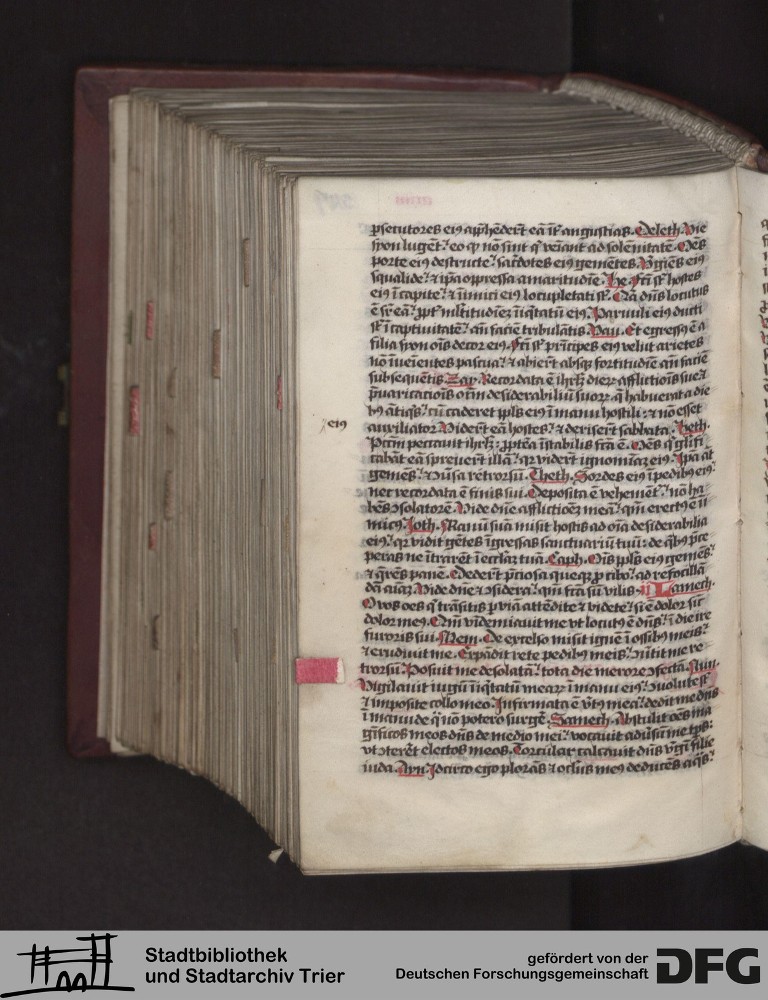 ꝑsecutores eiꝰ app̃hēdert̄ eā īt̄ angustias. Deleth. Vie
syon lugēt: eo ꝙ nō sint q̄ veīant ad solēnitatē. Om̄s
porte eiꝰ destructe: sac̄dotes eiꝰ gemētes. V̄gīes eiꝰ
squalide: ⁊ ip̄a opp̄ressa amaritudīe. He. Fc̄i st̄ hostes
eiꝰ ī capite: ⁊ īimici eiꝰ locupletati st̄. Quia dn̄s locutus
ē sr̄ eā: ꝓpt̄ mltitudiēꝫ īiq̄tatū eiꝰ. Paruuli eiꝰ ducti
st̄ ī captiuitatē: an̄ faciē tribulātis. Vau. Et egressꝰ ē a
filia syon oīs decor eiꝰ. Fc̄i st̄ prīcipes eiꝰ velut arietes
nō īueīentes pascua: ⁊ abiert̄ absqꝫ fortitudīe an̄ faciē
subseqn̄tis. Zay. Recordata ē ihrl̄ꝫ dierꝝ afflictiōis sue ⁊
p̄uaricatiōis oīm desiderabiliū suorꝝ q̄ habuerat a die
bꝰ ātiq̄s: cū caderet ppl̄s eiꝰ ī manu hostili: ⁊ nō esset
eiꝰ
auxiliator. Vidert̄ eā hostes: ⁊ deriserт̄ sabbata. Heth.
Pctm̄ peccauit ihrl̄ꝫ: ꝓpt̄ea īstabilis fc̄a ē. Om̄s q̄ gl̄ifi
cabāt eā spreuert̄ illā: qꝛ vidert̄ ignomīaꝫ eiꝰ. Ip̄a āt
gemēs: ⁊ ꝯuersa retrorsū. Theth. Sordes eiꝰ ī pedibꝰ eiꝰ:
nec recordata ē finis sui. Deposita ē vehemēt̄: nō ha
bēs ꝯsolatorē. Vide dn̄e afflictiōeꝫ meā: qm̄ erectꝰ ē īi
micꝰ. Joth. Manū suā misit hostis ad oīa desiderabilia
eiꝰ: qꝛ vidit gētes īgressas sanctuariū tuū: de qb̄ꝰ p̄ce
peras ne ītrarēt ī ecclīaꝫ tuā. Caph. Oīs ppl̄s eiꝰ gemēs:
⁊ q̄rēs panē. Dedert̄ p̄ciosa queqꝫ ꝓ cibo: ad refocillā
dā aīaꝫ. Vide dn̄e ⁊ ꝯsidera: qm̄ fc̄a sū vilis. Lamech.
O vos oēs q̄ trāsitis ꝑ viā attēdite ⁊ videte: si ē dolor sic̄
dolor meꝰ. Qm̄ vīdemiauit me vt locutꝰ ē dn̄s: ī die ire
furoris sui. Mem. De excelso misit ignē ī ossibꝰ meis:
⁊ erudiuit me. Expādit rete pedibꝰ meis: ꝯūtit me re
trorsū. Posuit me desolatā: tota die merore ꝯfectā. Nun.
Vigilauit iugū īiq̄tatū mearꝝ ī manu eiꝰ: ꝯuolute st̄
⁊ īposite collo meo. Infirmata ē v̄tꝰ mea: dedit me dn̄s
ī manu de q̄ nō potero surgē. Samech. Abstulit oēs ma
gīficos meos dn̄s de medio mei: vocauit adūsū me tp̄s:
vt ꝯterēt electos meos. Torcular calcauit dn̄s v̄gī filie
iuda. Ayn. Idcirco ego plorās: ⁊ oclūs meꝰ deducēs aq̄s:
Stadtbibliothek
und Stadtarchiv Trier
gefördert von der
Deutschen Forschungsgemeinschaft
DFG